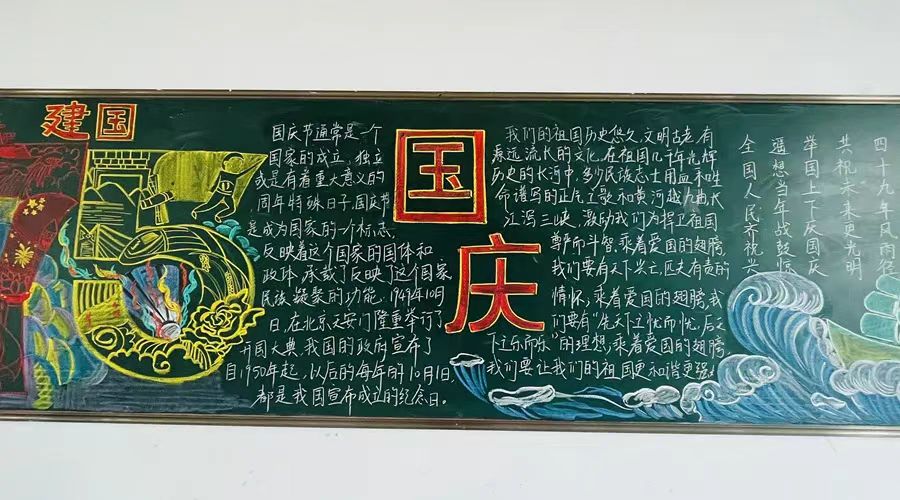 建国
国庆
国庆节通常是一个
国家的成立、独立
或是有着重大意义的
周年特殊日子。国庆节
是成为国家的一个标志,
反映着这个国家的国体和
政体,承载了反映了这个国家、
民族凝聚的功能。1949年10月
日,在北京天安门隆重举行了
开国大典。我国的政府宣布了
自1950年起,以后的每年的10月1日,
都是我国宣布成立的纪念日。
我们的祖国历史悠久,文明古老,有
源远流长的文化。在祖国几千年光辉
历史的长河中,多少民族志士用血和生
命谱写的正气之歌和黄河越九曲长
江泻三峡,激励我们为捍卫祖国
尊严而斗智,乘着爱国的翅膀
我们要有天下兴亡,匹夫有责的
情怀,乘着爱国的翅膀我
们要有“先天下之忧而忧,后天
下之乐而乐”的理想,乘着爱国的翅膀
我们要让我们的祖国更和谐更强。
四十九年风雨径
共祝未来更光明
举国上下庆国庆
遥想当年战鼓惊
全国人民齐祝兴